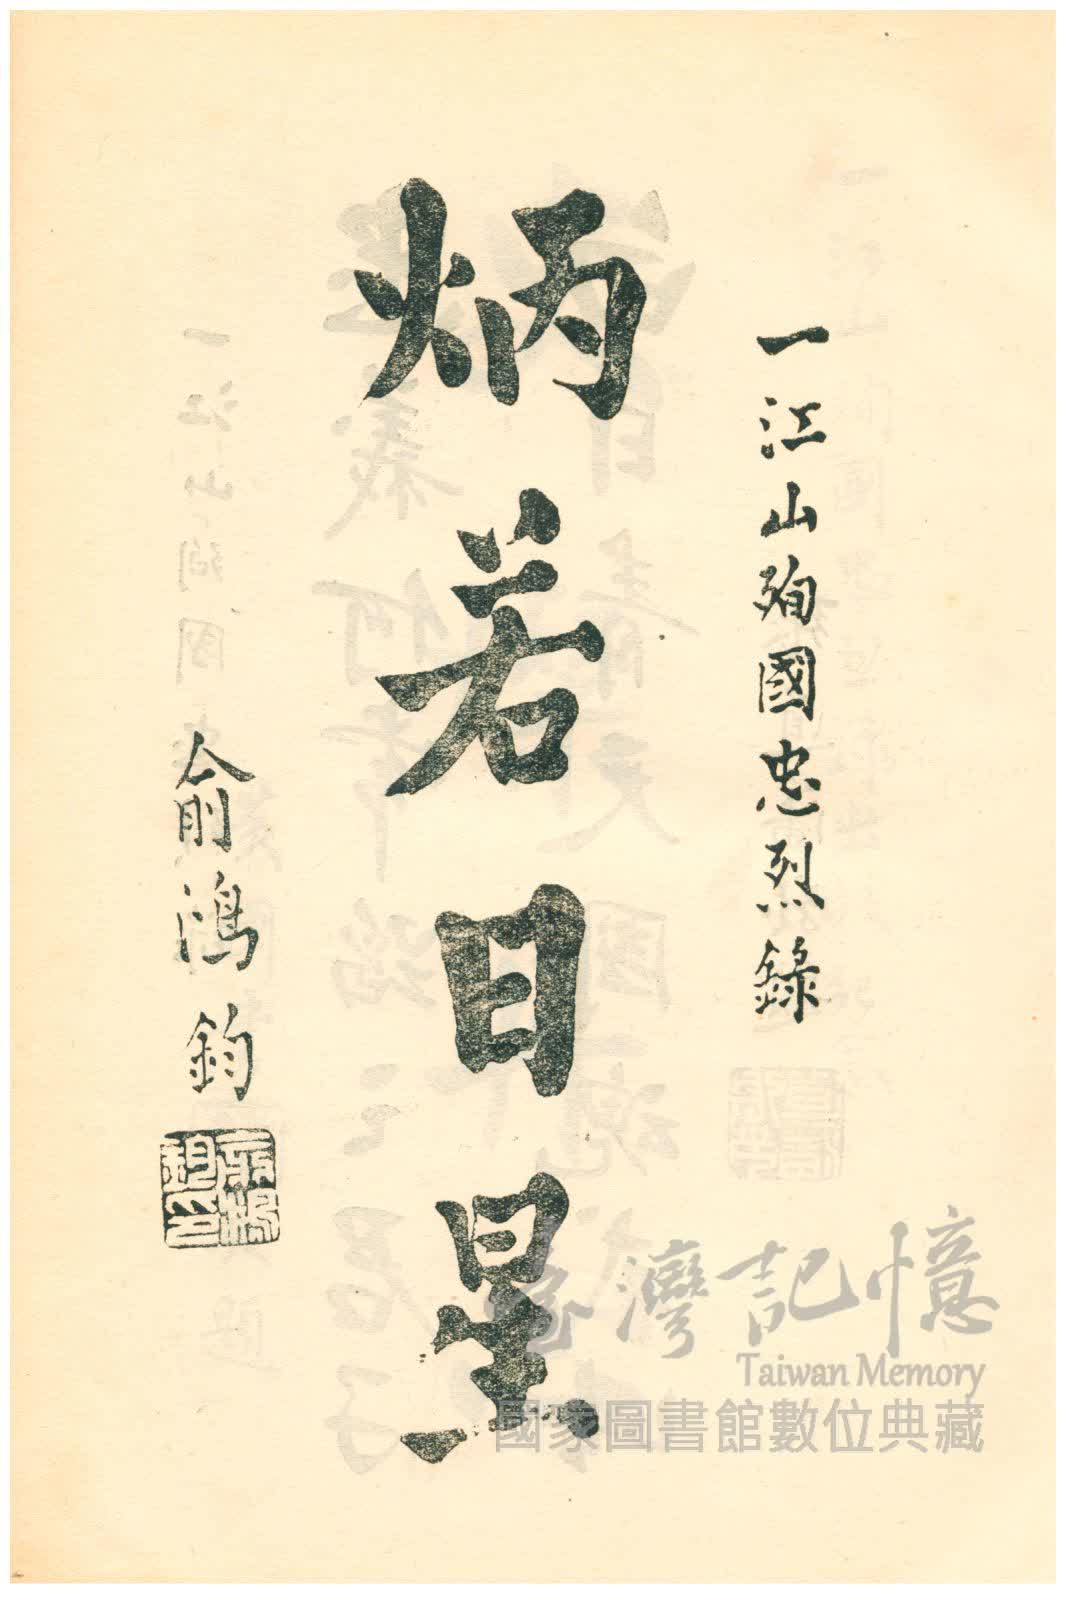 一江山殉國忠烈錄
炳若日星
俞鴻鈞
臺灣記憶
Taiwan Memory
國家圖書館數位典藏